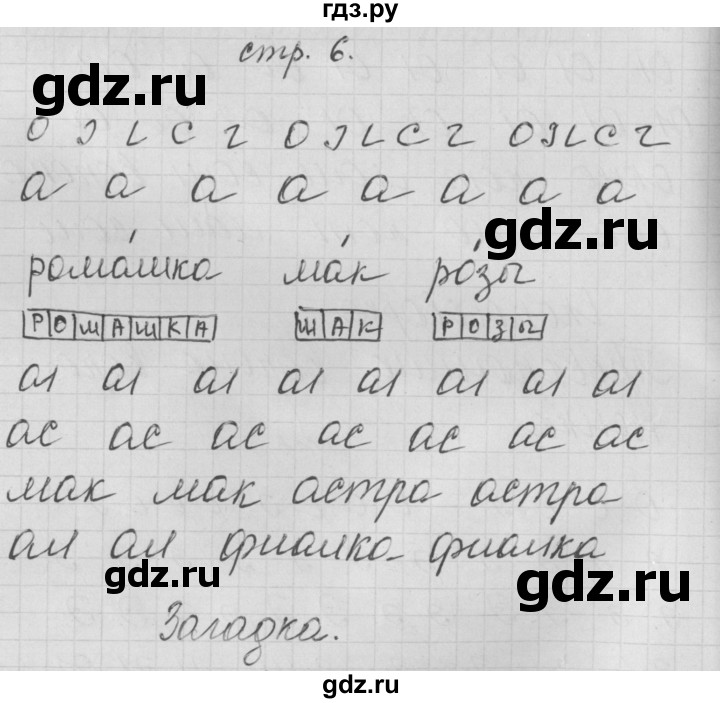 гдз.ру
стр. 6.
gdz.ru
о э ι с г о э ι с г о э ι с г
а а а а а а а а
gdz.ru
рома́шка ма́к ро́зы
РОМАШКА МАК РОЗЫ
аı аı аı аı аı аı аı аı
ас ас ас ас ас ас ас
мак мак астра астра
ал ал фиалка фиалка
gdz.ru gdz.ru
Загадка.
gdz.ru